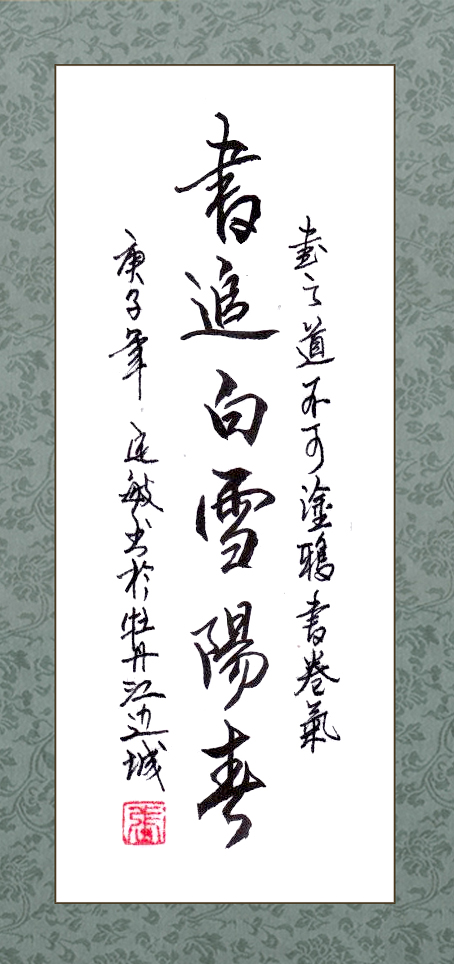 畫之道不可塗鴉書卷氣
書追白雪陽春
庚子筆 敏书於牡丹江边城